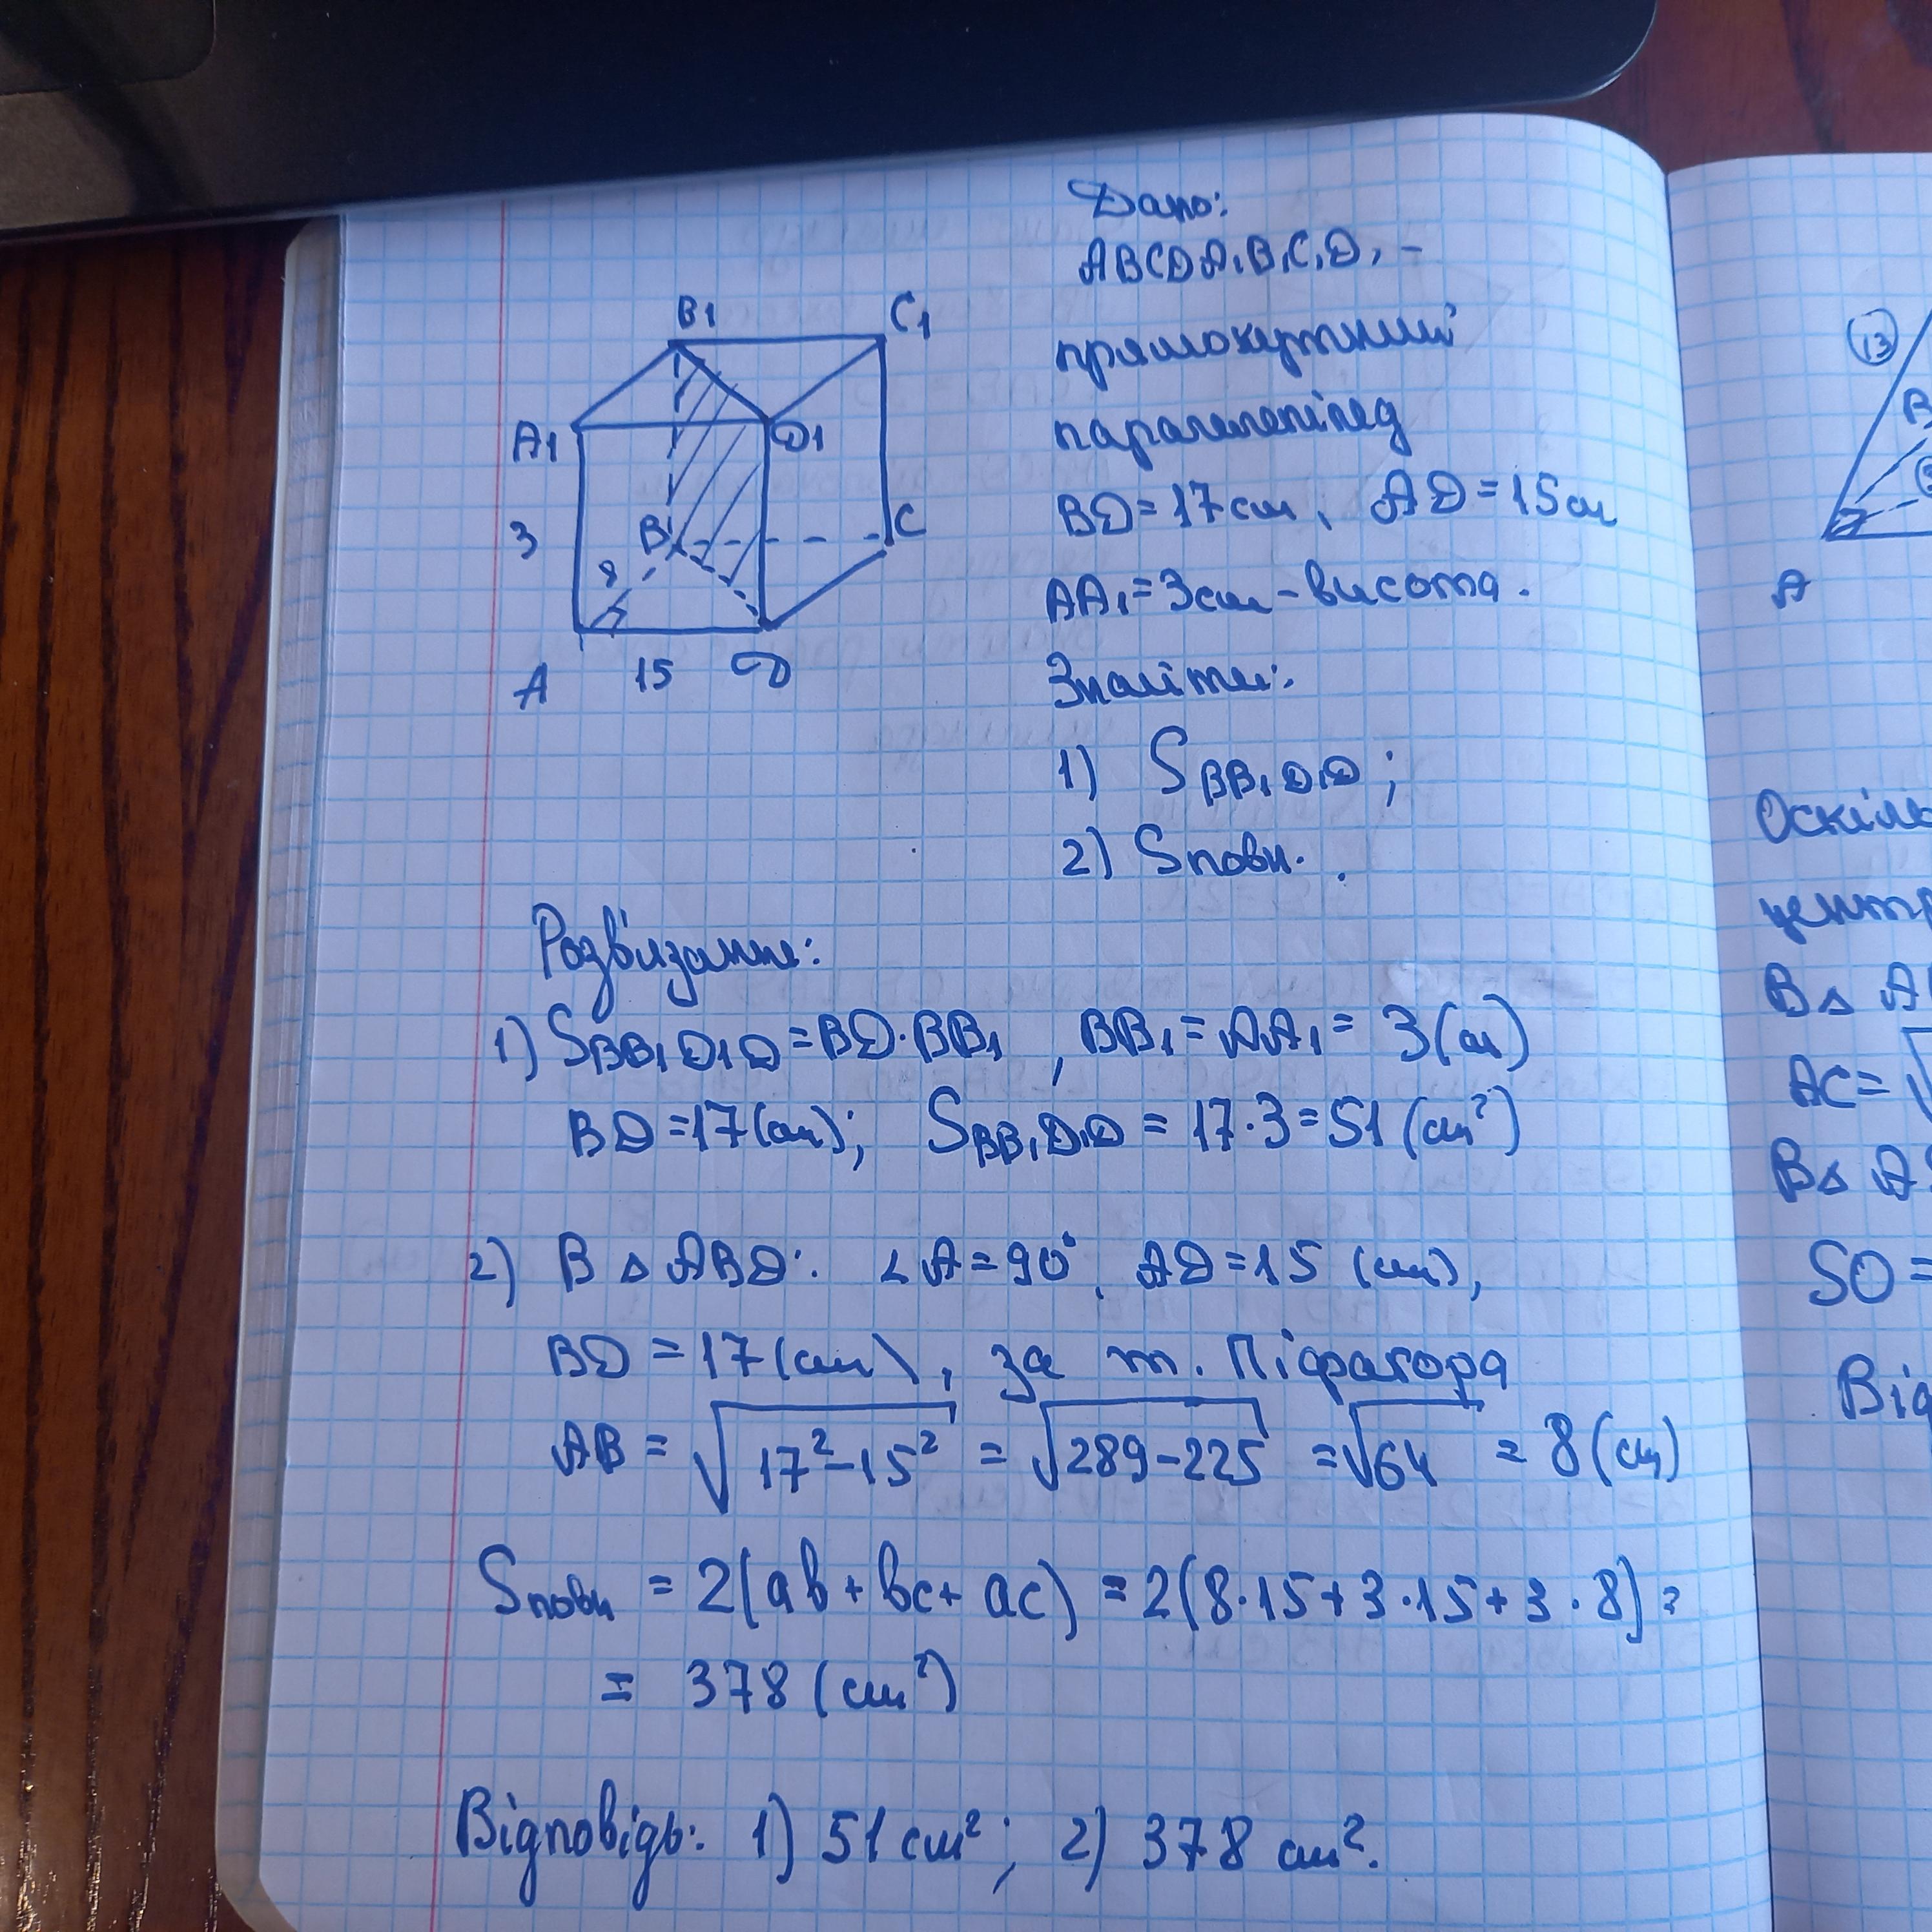 Дано:
ABCDA₁B₁C₁D₁ –
прямокутний
паралелепіпед
BD = 17 см, AD = 15 см
AA₁ = 3 см – висота.
Знайти:
1) S BB₁D₁D ;
2) Sповн.
B1 C1
A1 D1
3 B C
8
A 15 D
Розв'язання:
1) S BB₁D₁D = BD · BB₁ , BB₁ = AA₁ = 3 (см)
BD = 17 (см); S BB₁D₁D = 17 · 3 = 51 (см²)
2) В △ ABD: ∠A = 90°, AD = 15 (см),
BD = 17 (см), за т. Піфагора
AB = √17² – 15² = √289 – 225 = √64 = 8 (см)
Sповн = 2(ab + bc + ac) = 2(8 · 15 + 3 · 15 + 3 · 8) =
= 378 (см²)
Відповідь: 1) 51 см²; 2) 378 см².
13
A
B△
AC = √
B△
SO =